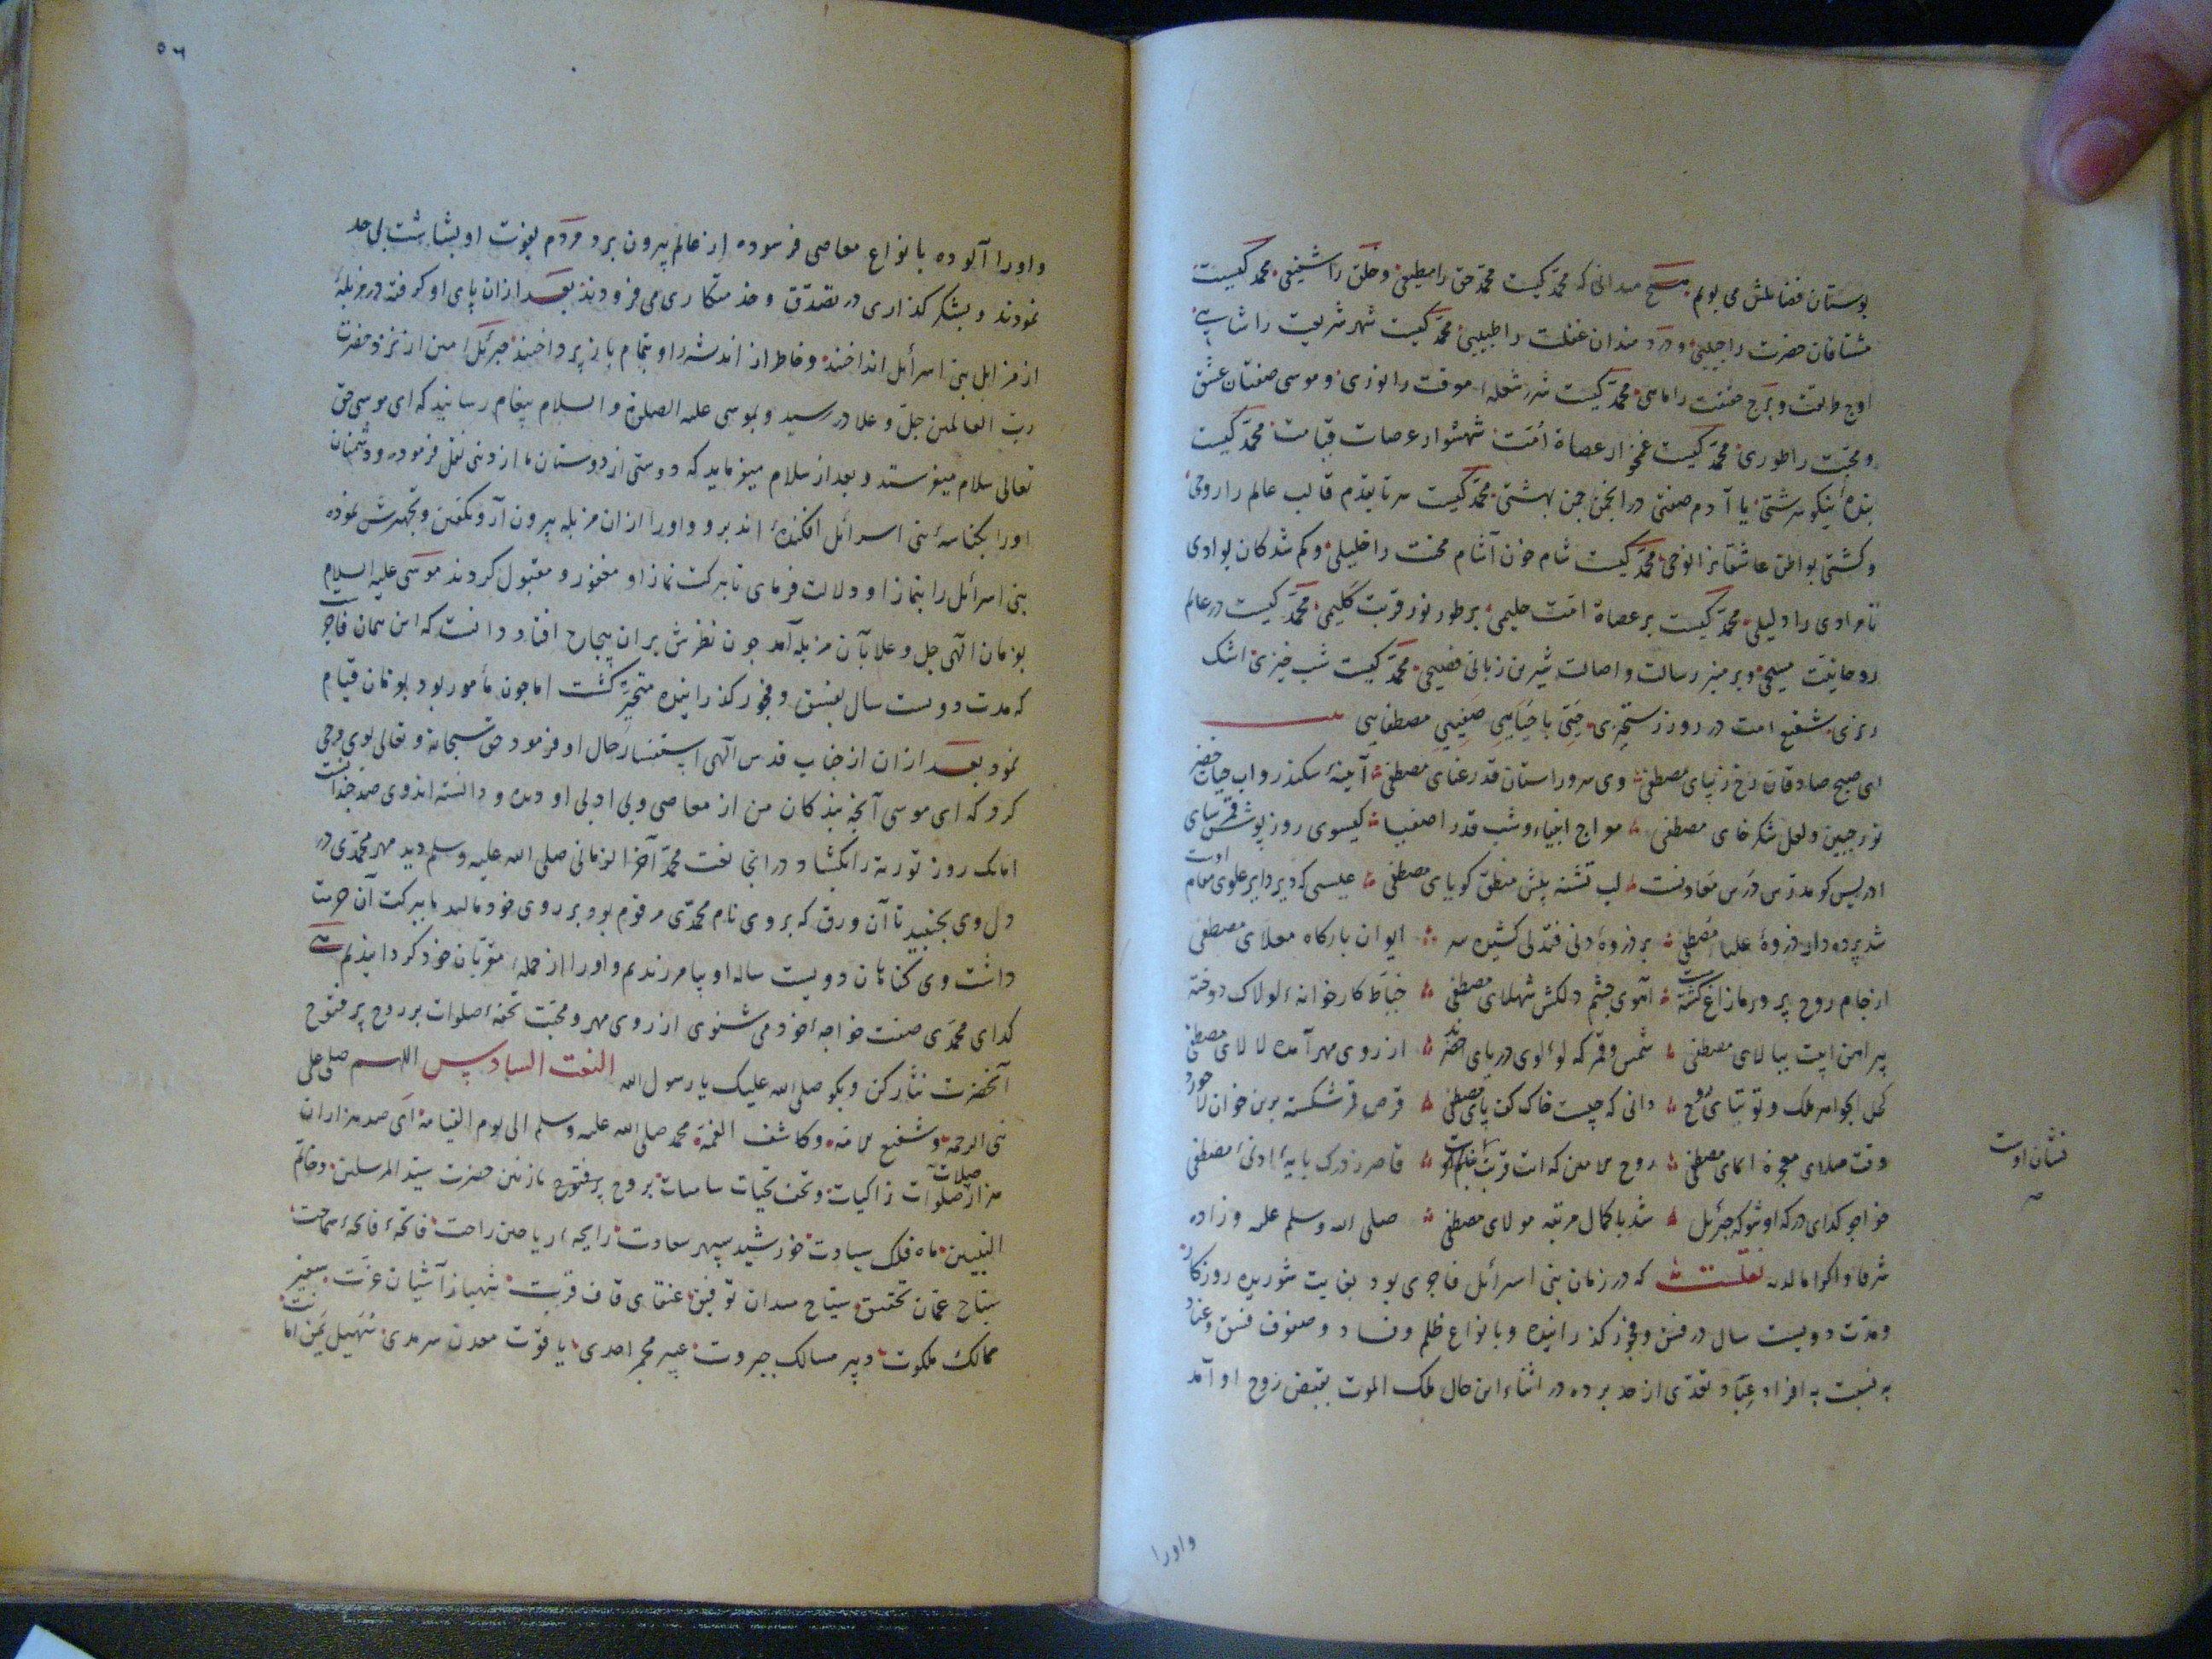 بوستان فضائلش می بویم هیچ میدانی که محمد کیست محمد حق را مطیعی و خلق را شفیعی محمد کیست
مشتاقان حضرت را حبیبی و دردمندان غفلت را طبیبی محمد کیست شهر شریعت را شاهی
اوج طریقت و برج حقیقت را ماهی محمد کیست شرر شعله معرفت را نوری و موسی صفتان عشق
و محبت را طوری محمد کیست غمخوار عصاة امت شهسوار عرصات قیامت محمد کیست
بنده نیکو سرشتی با آدم صفتی در انجمن چمن بهشتی محمد کیست سر تا بقدم قالب عالم را روحی
و کشتی بواطن عاشقانرا نوحی محمد کیست شام خون آشام محنت را خلیلی و کم شدکان بوادی
نامرادی را دلیلی محمد کیست بر عصاة امت حلیمی بر طور نور قربت کلیمی محمد کیست در عالم
روحانیت مسیحی و بر منبر رسالت و اصالت شیرین زبانی فصیحی محمد کیست شب خیزی اشک
ریزی شفیع امت در روز رستخیزی مصطفایی
ای صبح صادقان رخ زیبای مصطفی وی سرو راستان قد رعنای مصطفی آیینهٔ سکندر و آب حیات خضر
نور جبین و لعل شکر خای مصطفی معراج انبیاء و شب قدر اصفیا کیسوی روز پوش قمر سای
ادریس کو مدرس درس معاد نست لب تشنه پیش منطق کویای مصطفی عیسی که دیر دایر علوی مقام اوست
شد پرده دار ذروهٔ علیاء مصطفی بر ذروهٔ دنی فتدلی کشیده سر ایوان بارکاه معلای مصطفی
از جام روح پرور ما زاغ کشته مست آهوی چشم دلکش شهلای مصطفی خیاط کارخوانهٔ لولاک دوخته
پیراهن ابیت ببالای مصطفی شمس و قمر که لؤلوی دریای خضرند از روی مهر آمده لالای مصطفی
کحل جواهر ملک و توتیای روح دانی که چیست خاک کف پای مصطفی قرص قمر شکسته برین خوان لاجورد
وقت صلای معجزه ایمای مصطفی روح الامین که آیت قربت بنام اوست قاصر ز درک پایهٔ ادنیٔ مصطفی
خواجو کدای درکه او شو که جبرئیل شد با کمال مرتبه مولای مصطفی صلی الله علیه وسلم و زاده
شرفا و اکراما لدیه نقلست که در زمان بنی اسرائل فاجری بود بغایت شوریده روزکار
و مدت دویست سال در فسق و فجور کذرانیده و بانواع ظلم و فساد و صنوف فسق و عناد
به نسبت به افراد عباد تعدی از حد برده در اثناء این حال ملک الموت بقبض روح او آمد
نشان اوست
صـ
و اورا
٥٦
و اورا آلوده بانواع معاصی فرسوده از عالم بیرون برد مردم بفوت او بشاشت بی حد
نمودند و بشکر کذاری در تصدق و خدمتکاری می فزودند بعد از ان پای او کرفته در مزبلهٔ
از مزابل بنی اسرائل انداختند و خاطر از اندیشهٔ او بتمام باز پرداختند جبرئل امین از نزد حضرت
رب العالمین جل و علا در رسید و بموسی علیه الصلوة والسلام پیغام رسانید که ای موسی حق
تعالی سلام میفرستد و بعد از سلام میفرماید که دوستی از دوستان ما از دنی نقل فرموده و دشمنان
اورا بکناسهٔ بنی اسرائل افکنده اند برو و اورا از ان مزبله بیرون آر و تکفین و تجهیزش نموده
بنی اسرائل را بنماز او دلالت فرمای تا ببرکت نماز او مغفور و مقبول کردند موسی علیه السلام
بفرمان الهی جل و علا بآن مزبله آمد چون نظرش بران بیچاره افتاد دانست که این همان فاجر است
که مدت دویست سال بفسق و فجور کذرانیده متحیر کشت اما چون مأمور بود بفرمان قیام
نمود بعد از ان از جناب قدس الهی استفسار حال او فرمود حق سبحانه و تعالی بوی وحی
کرد که ای موسی آنچه بندکان من از معاصی و بی ادبی او دیده و دانسته اند وی صد چندانست
اما یک روز توریة را بکشاد در انجا نعت محمد آخر الزمانی صلی الله علیه وسلم دید مهر محمدی در
دل وی بجنبید تا آن ورق که بروی نام محمدی مرقوم بود بر روی خود مالید ما ببرکت آن حرمت
داشت وی کناهان دویست ساله او بیامرزیدیم و اورا از جملهٔ مقربان خود کردانیدیم
کدای محمدی صفت خواجهٔ خود می شنوی از روی مهر و محبت تحفهٔ صلوات بر روح پر فتوح
آنحضرت نثار کن و بکو صلی الله علیک یا رسول الله النعت السادس اللهم صلی علی
نبی الرحمة و شفیع الامة و کاشف الغمة محمد صلی الله علیه وسلم الی یوم القیامة ای صد هزاران
هزار صلوات صلات زاکیات و تحف تحیات سامیات بروح پر فتوح نازنین حضرت سید المرسلین و خاتم
النبیین ماه فلک سیادت خورشید سپهر سعادت رایحهٔ ریاحین راحت فاتحهٔ فاتحهٔ سماحت
سباح عمان تحقیق سیاح میدان توفیق عنقای قاف قربت شهباز آشیان عزت سفیر
ممالک ملکوت دبیر مسالک جبروت عبیر مجمر احدی یاقوت معدن سرمدی سهیل یمن امانت